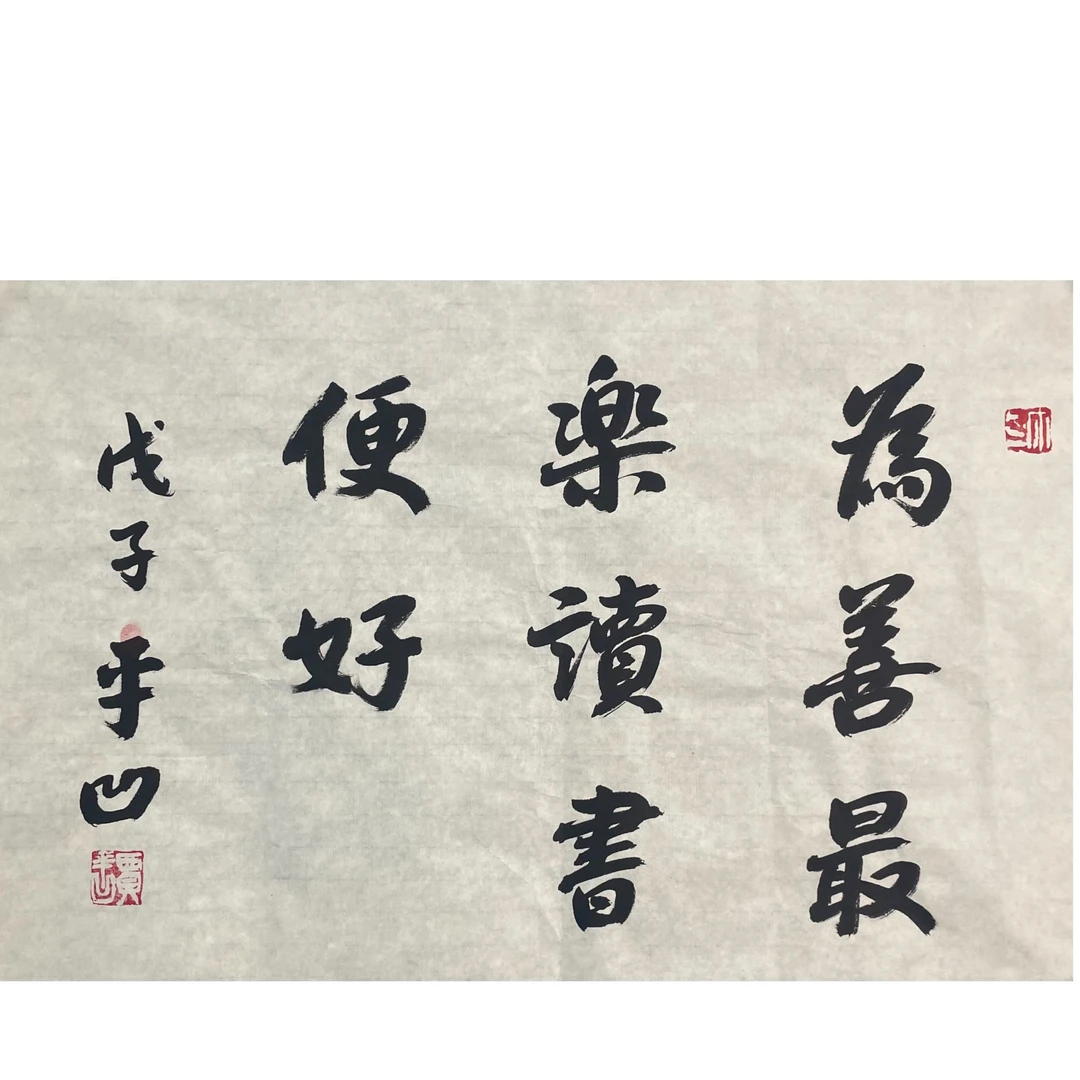 為善最
楽讀書
便好
戊子平凹